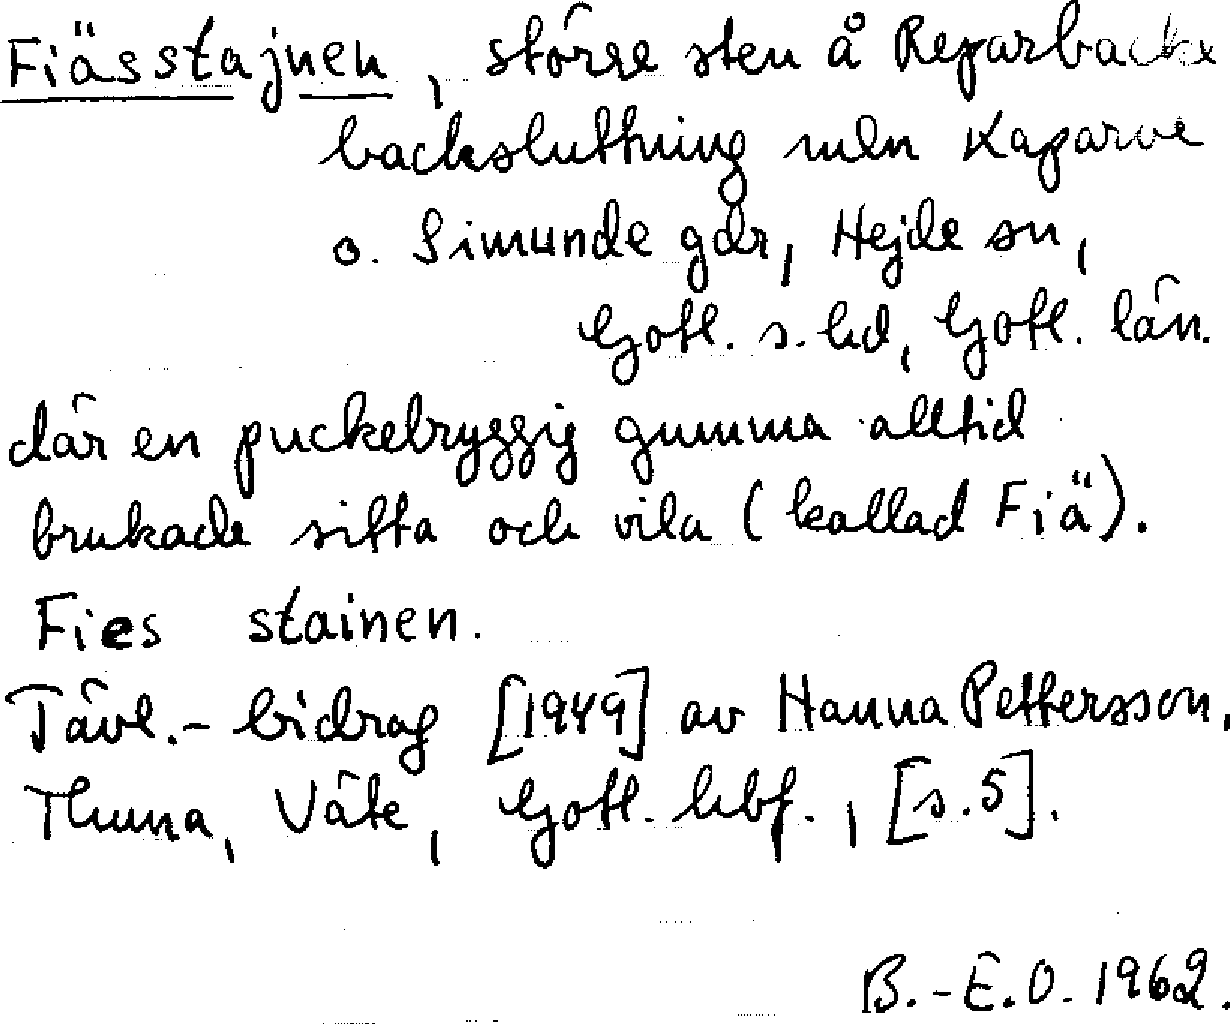 Fiässtajnen, större sten å Reparbacke
backsluttning mln Kaparve
o. Simunde gdr, Hejde sn,
Gotl. s. hd, Gotl. län.
där en puckelryggig gumma alltid
brukade sitta och vila (kallad Fiä).
Fies stainen.
Tävl.-bidrag [1949] av Hanna Pettersson,
Thuna, Väte, Gotl. hbf., [s.5].
B.-E.O. 1962.